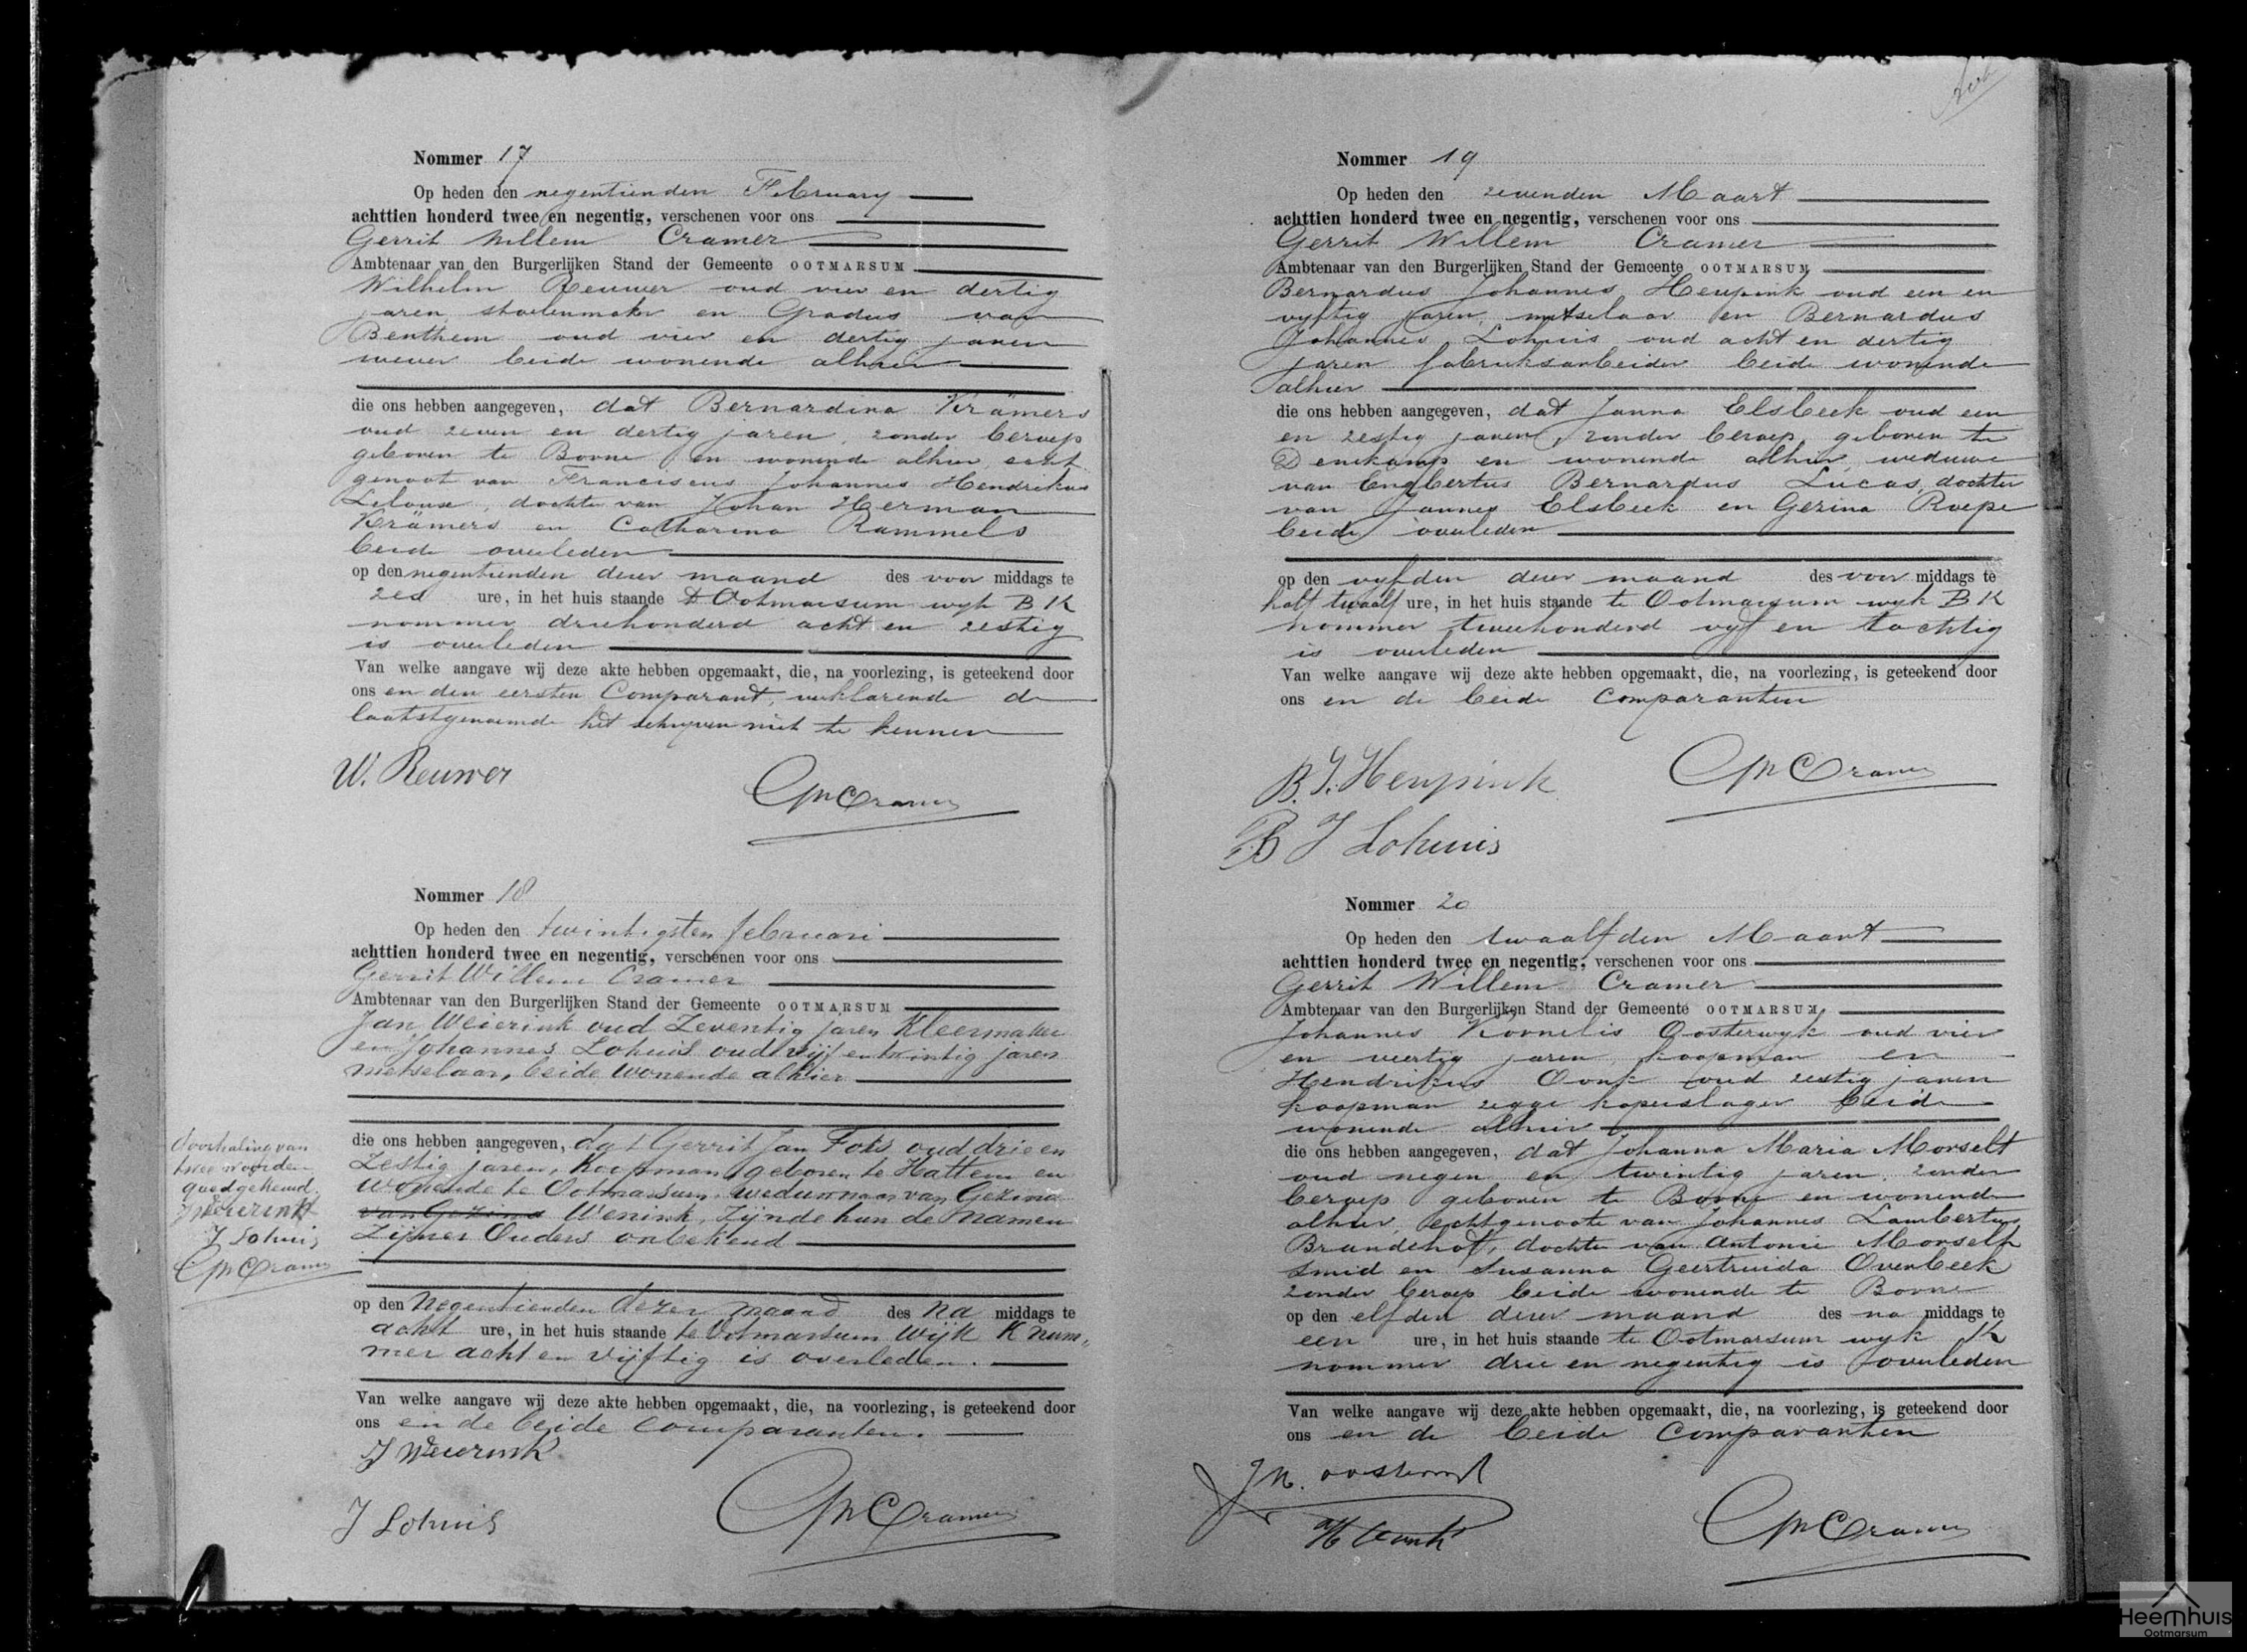 Nommer 17
Op heden den negentienden February
achttien honderd twee en negentig, verschenen voor ons
Gerrit Willem Cramer
Ambtenaar van den Burgerlijken Stand der Gemeente OOTMARSUM
Wilhelm Reuwer oud vier en dertig
jaren, stoelenmaker en Gradus van
Benthem oud vier en dertig jaren
wever beide wonende alhier
die ons hebben aangegeven, dat Bernardina Krämers
oud zeven en dertig jaren, zonder beroep
geboren te Borne en wonende alhier, echt
genoot van Franciscus Johannes Hendrikus
dochter van Johan Herman
Krämers en Catharina Rammels
beide overleden
op den negentienden dezer maand des voor middags te
zes ure, in het huis staande te Ootmarsum wyk B K
nommer driehonderd acht en zestig
is overleden
Van welke aangave wij deze akte hebben opgemaakt, die, na voorlezing, is geteekend door
ons en den eersten Comparant, verklarende de
laatstgenoemde het schryven niet te kennen
W. Reuwer
GWCramer
Nommer 18
Op heden den twintigsten februari
achttien honderd twee en negentig, verschenen voor ons
Gerrit Willem Cramer
Ambtenaar van den Burgerlijken Stand der Gemeente OOTMARSUM
Jan Weierink oud Zeventig jaren Kleermaker
en Johannes Lohuis oud vijf en twintig jaren
metselaar, beide wonende alhier
die ons hebben aangegeven, dat Gerrit Jan Foks oud drie en
Zestig jaren, Koopman geboren te Hattem en
Wonende te Ootmarsum, weduwnaar van Gezina
van Gezina Wenink, Zijnde hun de Namen
Zijner Ouders onbekend
doorhaling van
twee woorden
goedgekeurd.
J Weierink
J Lohuis
GWCramer
op den Negentienden dezer maand des Na middags te
acht ure, in het huis staande te Ootmarsum Wijk K num„
mer acht en Vijftig is overleden.
Van welke aangave wij deze akte hebben opgemaakt, die, na voorlezing, is geteekend door
ons en de beide comparanten.
J Weierink
J Lohuis
GWCramer
Nommer 19
Op heden den zevenden Maart
achttien honderd twee en negentig, verschenen voor ons
Gerrit Willem Cramer
Ambtenaar van den Burgerlijken Stand der Gemeente OOTMARSUM
Bernardus Johannes Heupink oud een en
vyftig jaren, metselaar en Bernardus
Johannes Lohuis oud acht en dertig
jaren fabrieksarbeider beide wonende
alhier
die ons hebben aangegeven, dat Janna Elsbeek oud een
en zestig jaren, zonder beroep, geboren te
Denekamp en wonende alhier, weduwe
van Engbertus Bernardus Lucas, dochter
van Jannes Elsbeek en Gezina Roepe
beide overleden
op den vyfden dezer maand des voor middags te
half twaalf ure, in het huis staande te Ootmarsum wyk B K
nommer tweehonderd vyf en tachtig
is overleden
Van welke aangave wij deze akte hebben opgemaakt, die, na voorlezing, is geteekend door
ons en de beide Comparanten
B. J. Heupink
GWCramer
B J Lohuis
Nommer 20
Op heden den twaalfden Maart
achttien honderd twee en negentig, verschenen voor ons
Gerrit Willem Cramer
Ambtenaar van den Burgerlijken Stand der Gemeente OOTMARSUM
Johannes Kornelis Oosterwyk oud vier
en veertig jaren, koopman en
Hendrikus Oonk oud zestig jaren
koopman zegge koperslager beide
wonende alhier
die ons hebben aangegeven, dat Johanna Maria Morselt
oud negen en twintig jaren, zonder
beroep geboren te Borne en wonende
alhier, echtgenoote van Johannes Lambertus
Brandehof, dochter van Antonie Morselt
smid en Susanna Geertruida Overbeek
zonder beroep beide wonende te Borne
op den elfden dezer maand des na middags te
een ure, in het huis staande te Ootmarsum wyk K
nommer drie en negentig is overleden
Van welke aangave wij deze akte hebben opgemaakt, die, na voorlezing, is geteekend door
ons en de beide Comparanten
GWCramer
Heemhuis
Ootmarsum